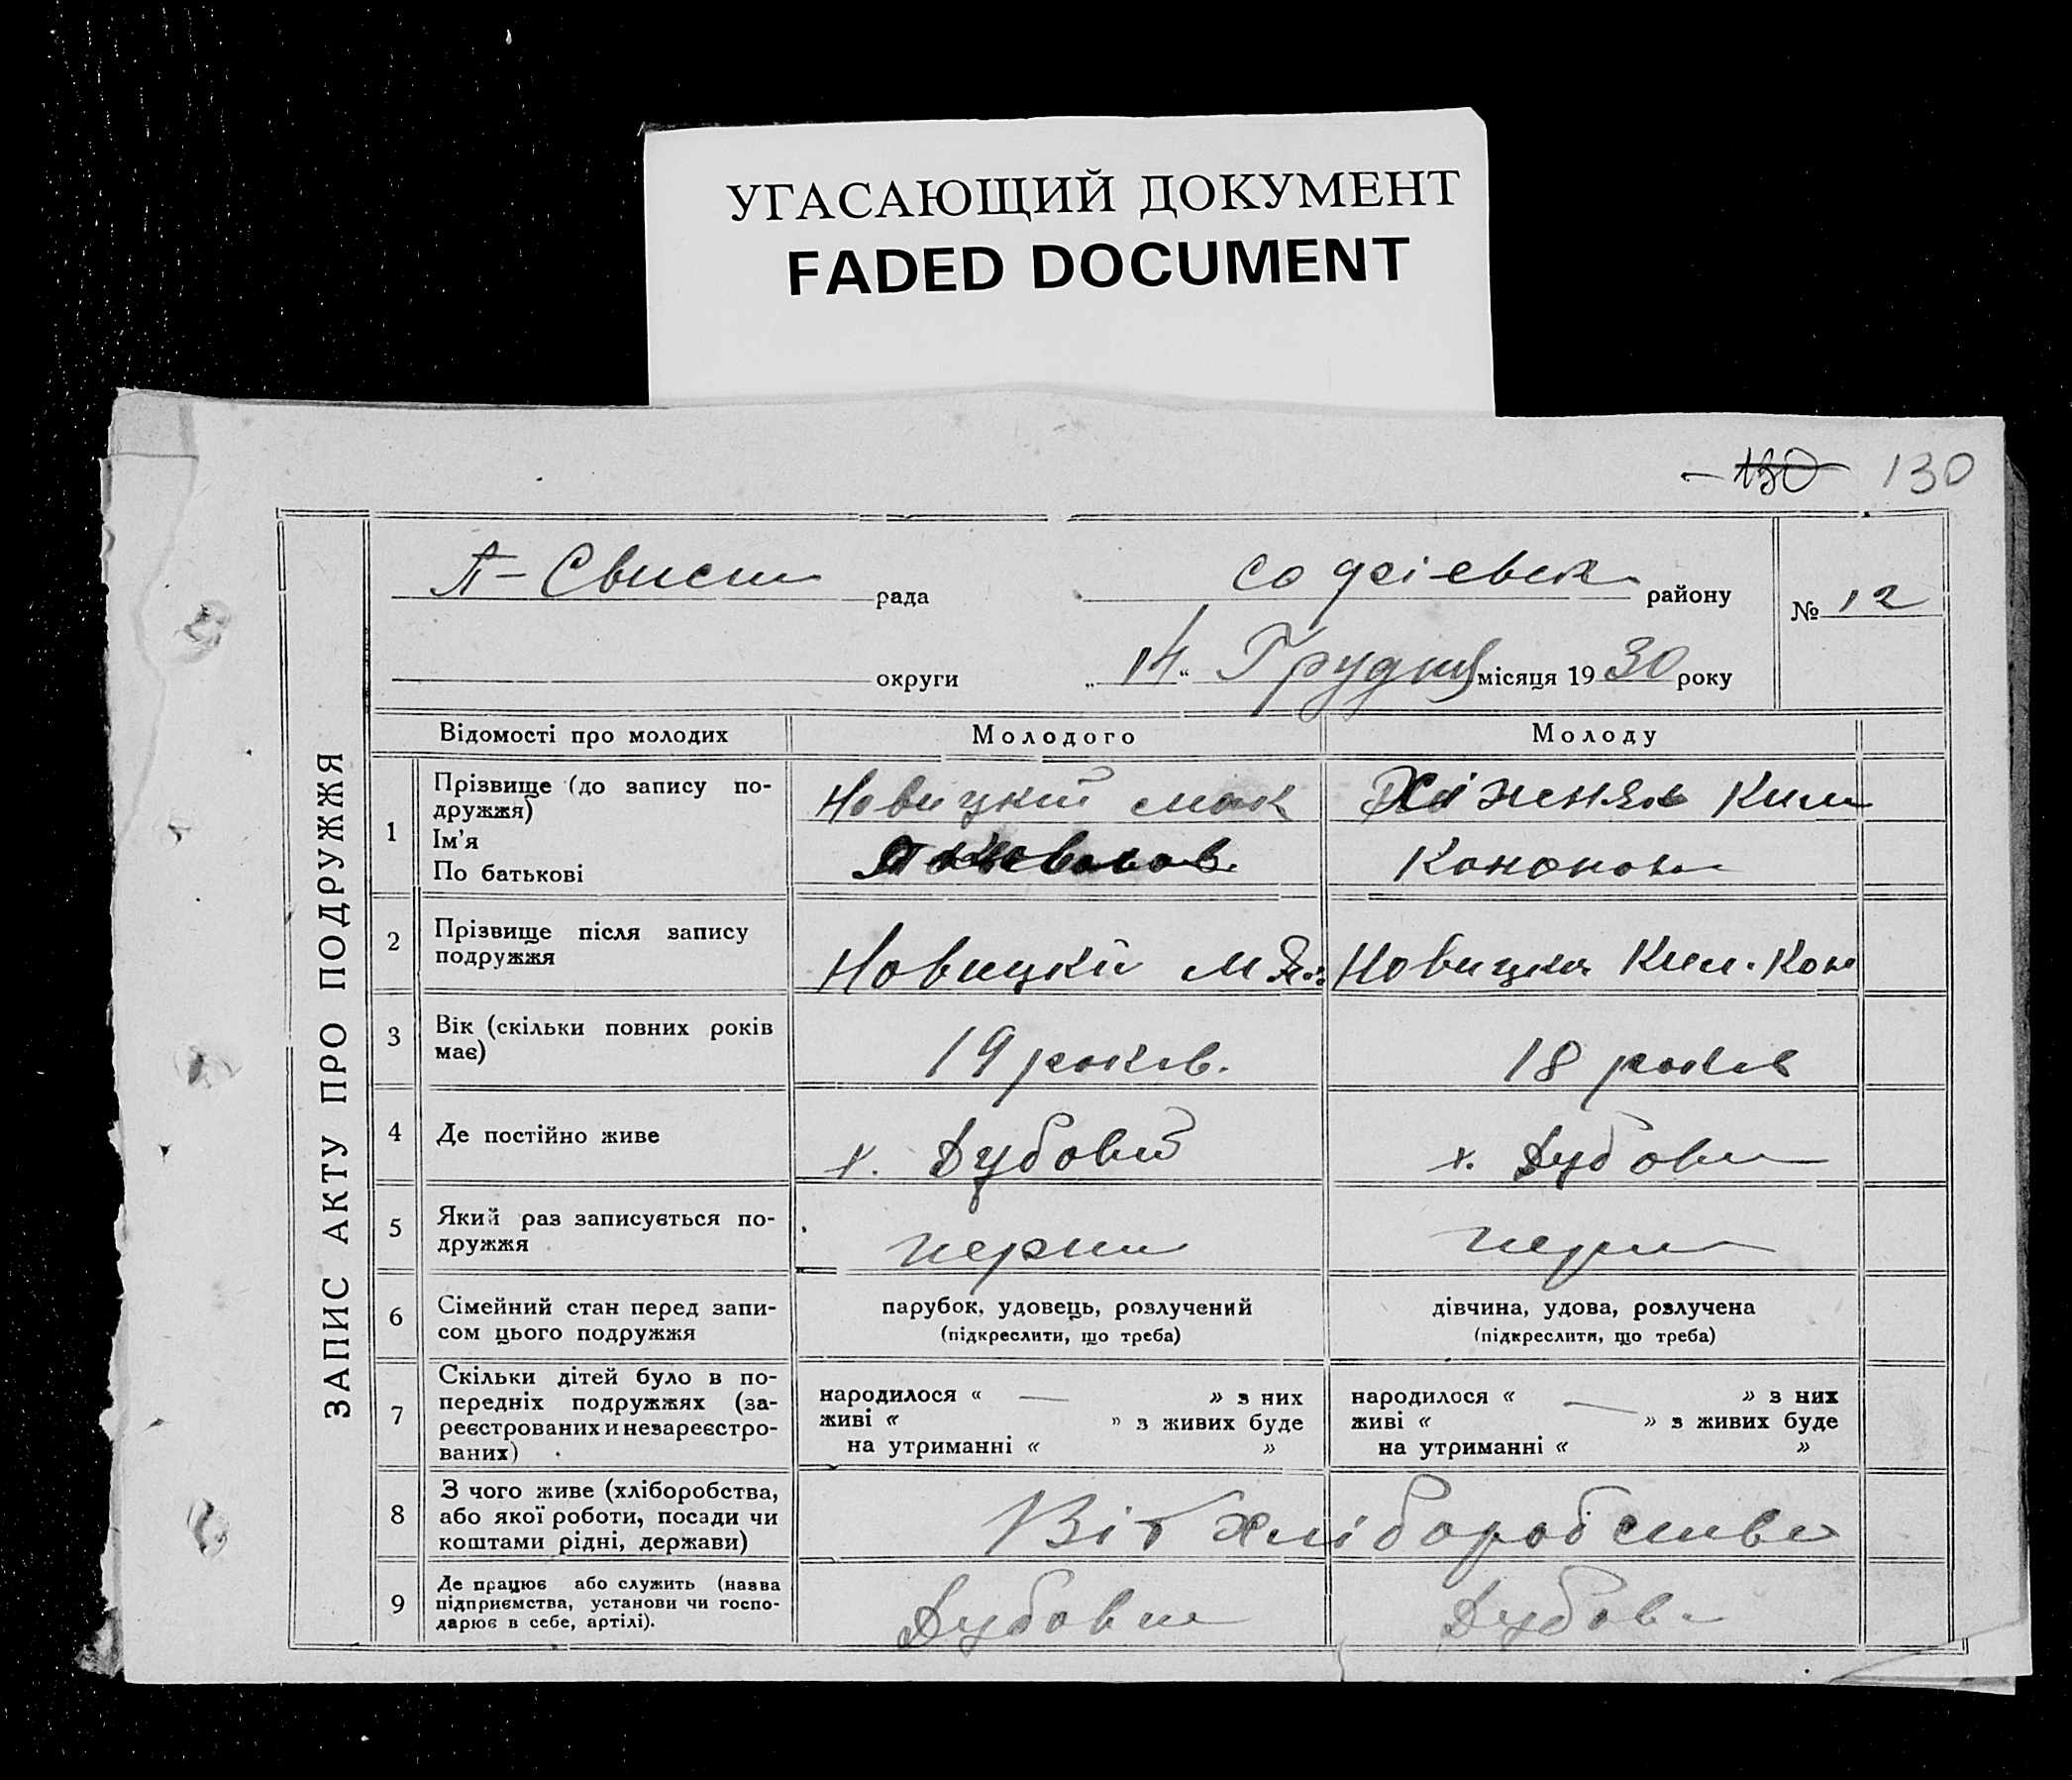 УГАСАЮЩИЙ ДОКУМЕНТ
FADED DOCUMENT
130 130
ЗАПИС АКТУ ПРО ПОДРУЖЖЯ
П-Свист рада району
№ 12
округи „14“ Грудня місяця 1930 року
Відомості про молодих Молодого Молоду
1 Прізвище (до запису по-
дружжя)
Ім'я
По батькові
Новицкий
Кононов
2 Прізвище після запису
подружжя
Новицкий М Як. Новицка Ким. Кон
3 Вік (скільки повних років
має)
19 років. 18 років
4 Де постійно живе х. Дубовий х. Дубови
5 Який раз записується по-
дружжя
перши перш
6 Сімейний стан перед запи-
сом цього подружжя
парубок, удовець, розлучений
(підкреслити, що треба)
дівчина, удова, розлучена
(підкреслити, що треба)
7 Скільки дітей було в по-
передніх подружжях (за-
реєстрованих и незареєстро-
ваних)
народилося « — » з них
живі « » з живих буде
на утриманні « »
народилося « — » з них
живі « » з живих буде
на утриманні « »
8 З чого живе (хліборобства,
або якої роботи, посади чи
коштами рідні, держави)
Віт хліборобства
9 Де працює або служить (назва
підприємства, установи чи госпо-
дарює в себе, артілі).
Дубовии Дубов